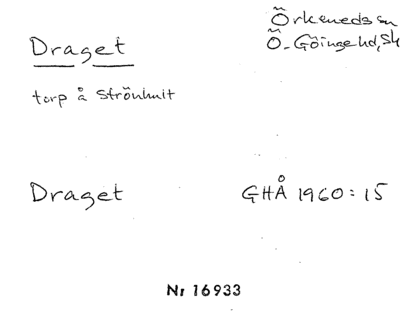 Draget
Örkeneds sn
Ö. Göinge hd, Sk
torp å Strönhult
Draget GHÅ 1960:15
Nr 16933